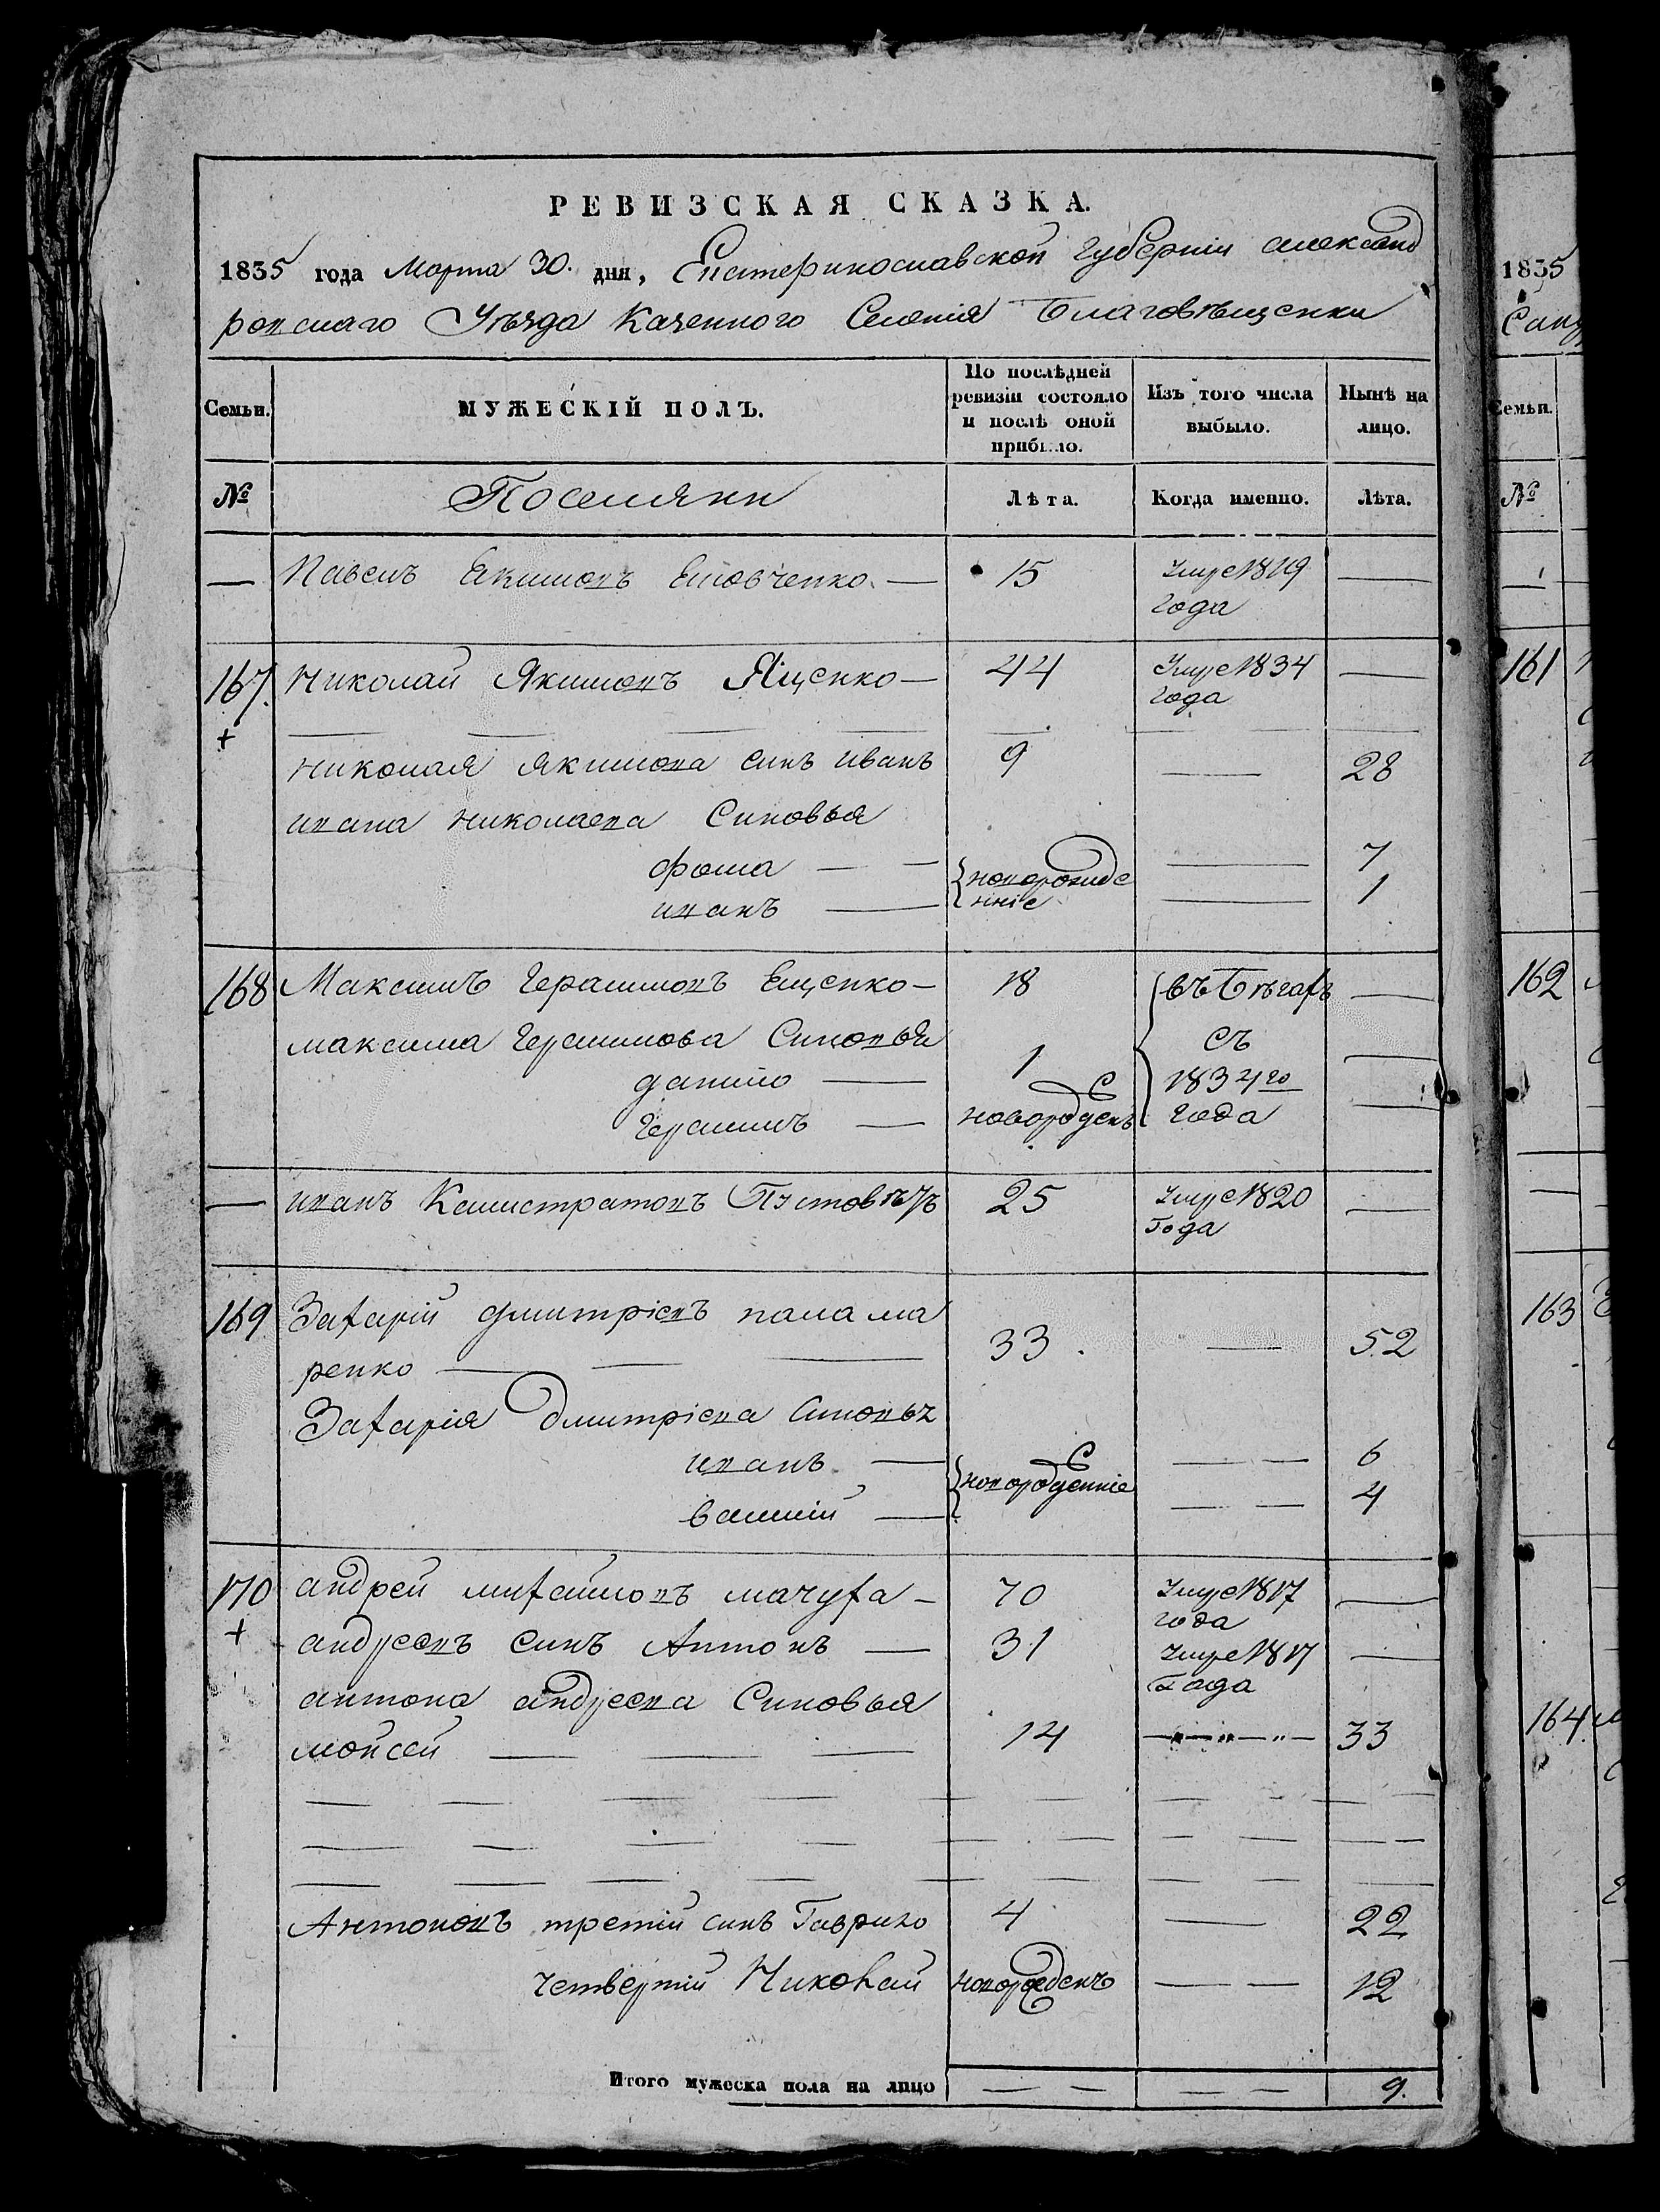 РЕВИЗСКАЯ СКАЗКА.
1835 года Марта 30. дня, Екатеринославской губерніи александ
ровскаго Уѣзда Казенного Селенія Благовѣщенки
Семьи.
МУЖЕСКІЙ ПОЛЪ.
По послѣдней ревизіи состояло и послѣ оной прибыло.
Изъ того числа выбыло.
Нынѣ на лицо.
№
Поселяни
Лѣта.
Когда именно.
Лѣта.
— Павелъ Екимовъ Еловченко — 15 Умре 1819 —
года
167. Николай Якимовъ Яценко — 44 Умре 1834 —
+ года
николая якимова синъ иванъ 9 — 28
ивана николаева Синовья
фома — — новорожде — 7
иванъ — нніе — 1
168 Максимъ Герасимовъ Еценко — 18 въ Бѣгахъ —
максима Герасимова Синовья съ
данило — 1 1834го —
Герасимъ — новорожденъ года —
— иванъ Калистратовъ Пустовѣтъ 25 Умре 1820 —
Года
169 Захарій дмитріевъ палама
ренко — — — 33 — 52
Захарія дмитріева Синовья
иванъ — новорожденніе — — 6
василій — — — 4
170 андрей михайловъ мачуха — 70 Умре 1817 —
+ года
андреевъ синъ Антонъ — 31 Умре 1817 —
Года
антона андреева Синовья
мойсей — — — 14 — 33
Антоновъ третій синъ Гаврило 4 — 22
четвертій Николай новорожденъ — — 12
Итого мужеска пола на лицо — — — — 9.
1835
Семьи.
№
161
162
163
164